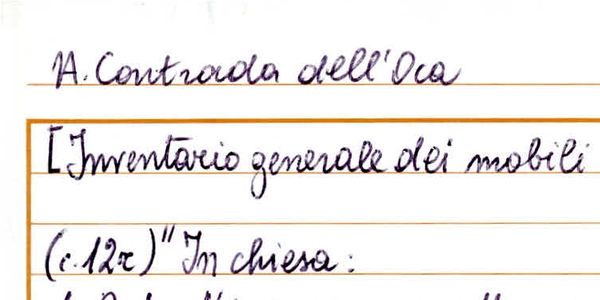 A. Contrada dell'Oca
[Inventario generale dei mobili
(c.12r)" In chiesa: